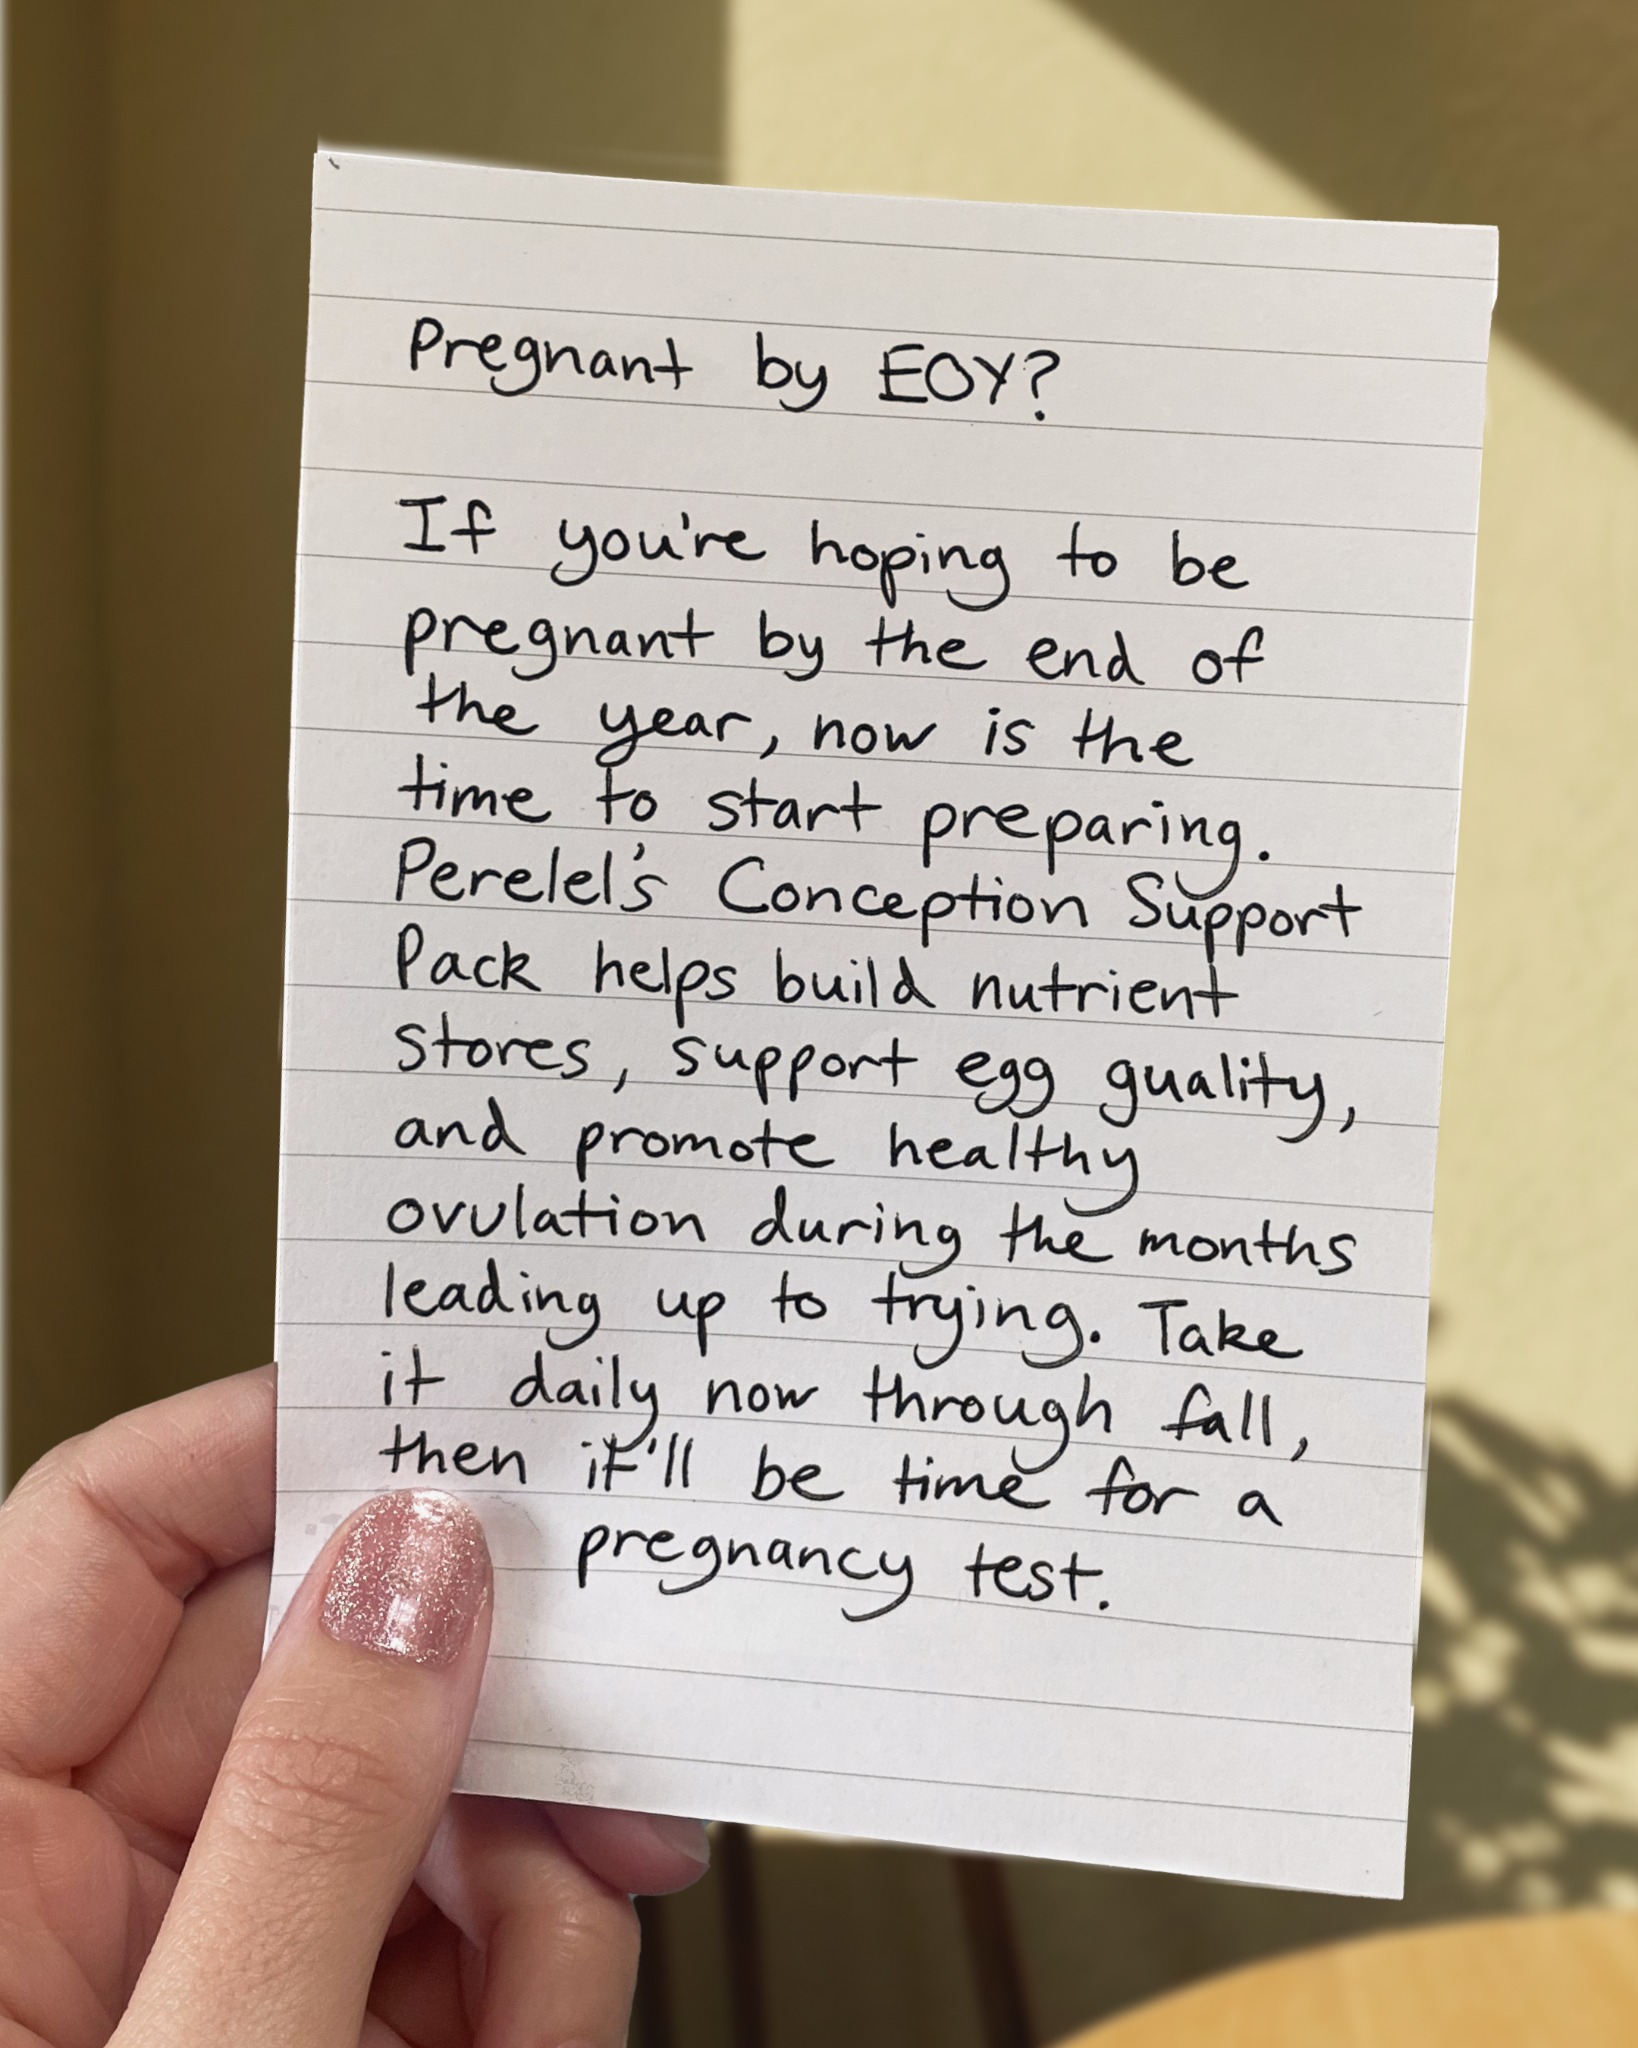 Pregnant by EOY?
If you're hoping to be
pregnant by the end of
the year, now is the
time to start preparing.
Perelel's Conception Support
Pack helps build nutrient
stores, support egg quality,
and promote healthy
ovulation during the months
leading up to trying. Take
it daily now through fall,
then it'll be time for a
pregnancy test.